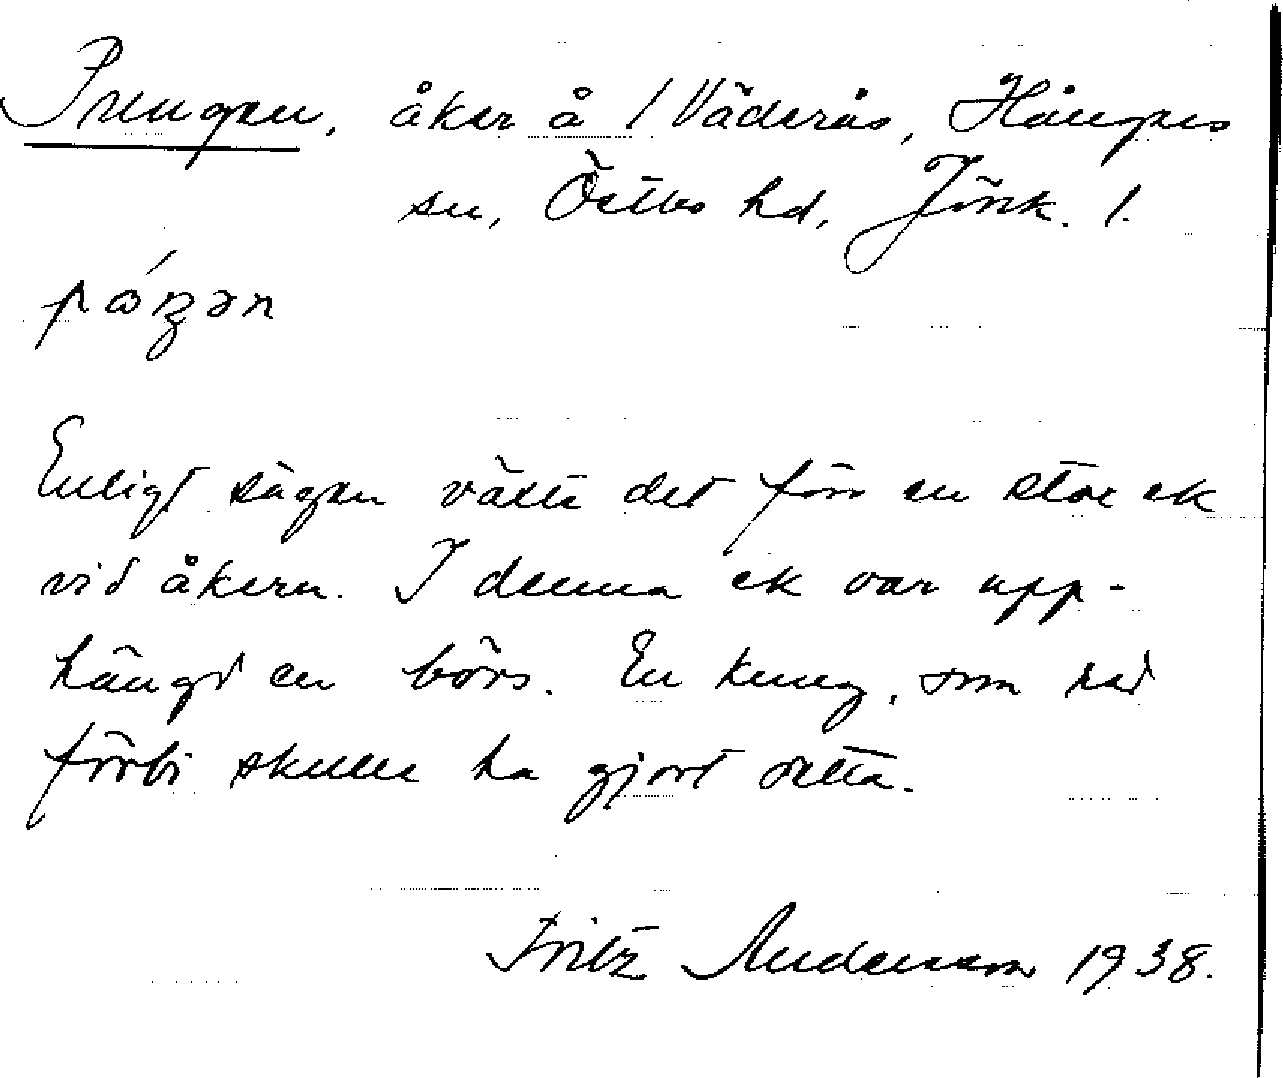 Pungen, åker å 1 Väderås, Hångers
sn, Östbo hd, Jönk. l.
Enligt sägen växte det förr en stor ek
vid åkern. I denna ek var upp-
hängd en börs. En kung, som red
förbi skulle ha gjort detta.
Fritz Andersson 1938.